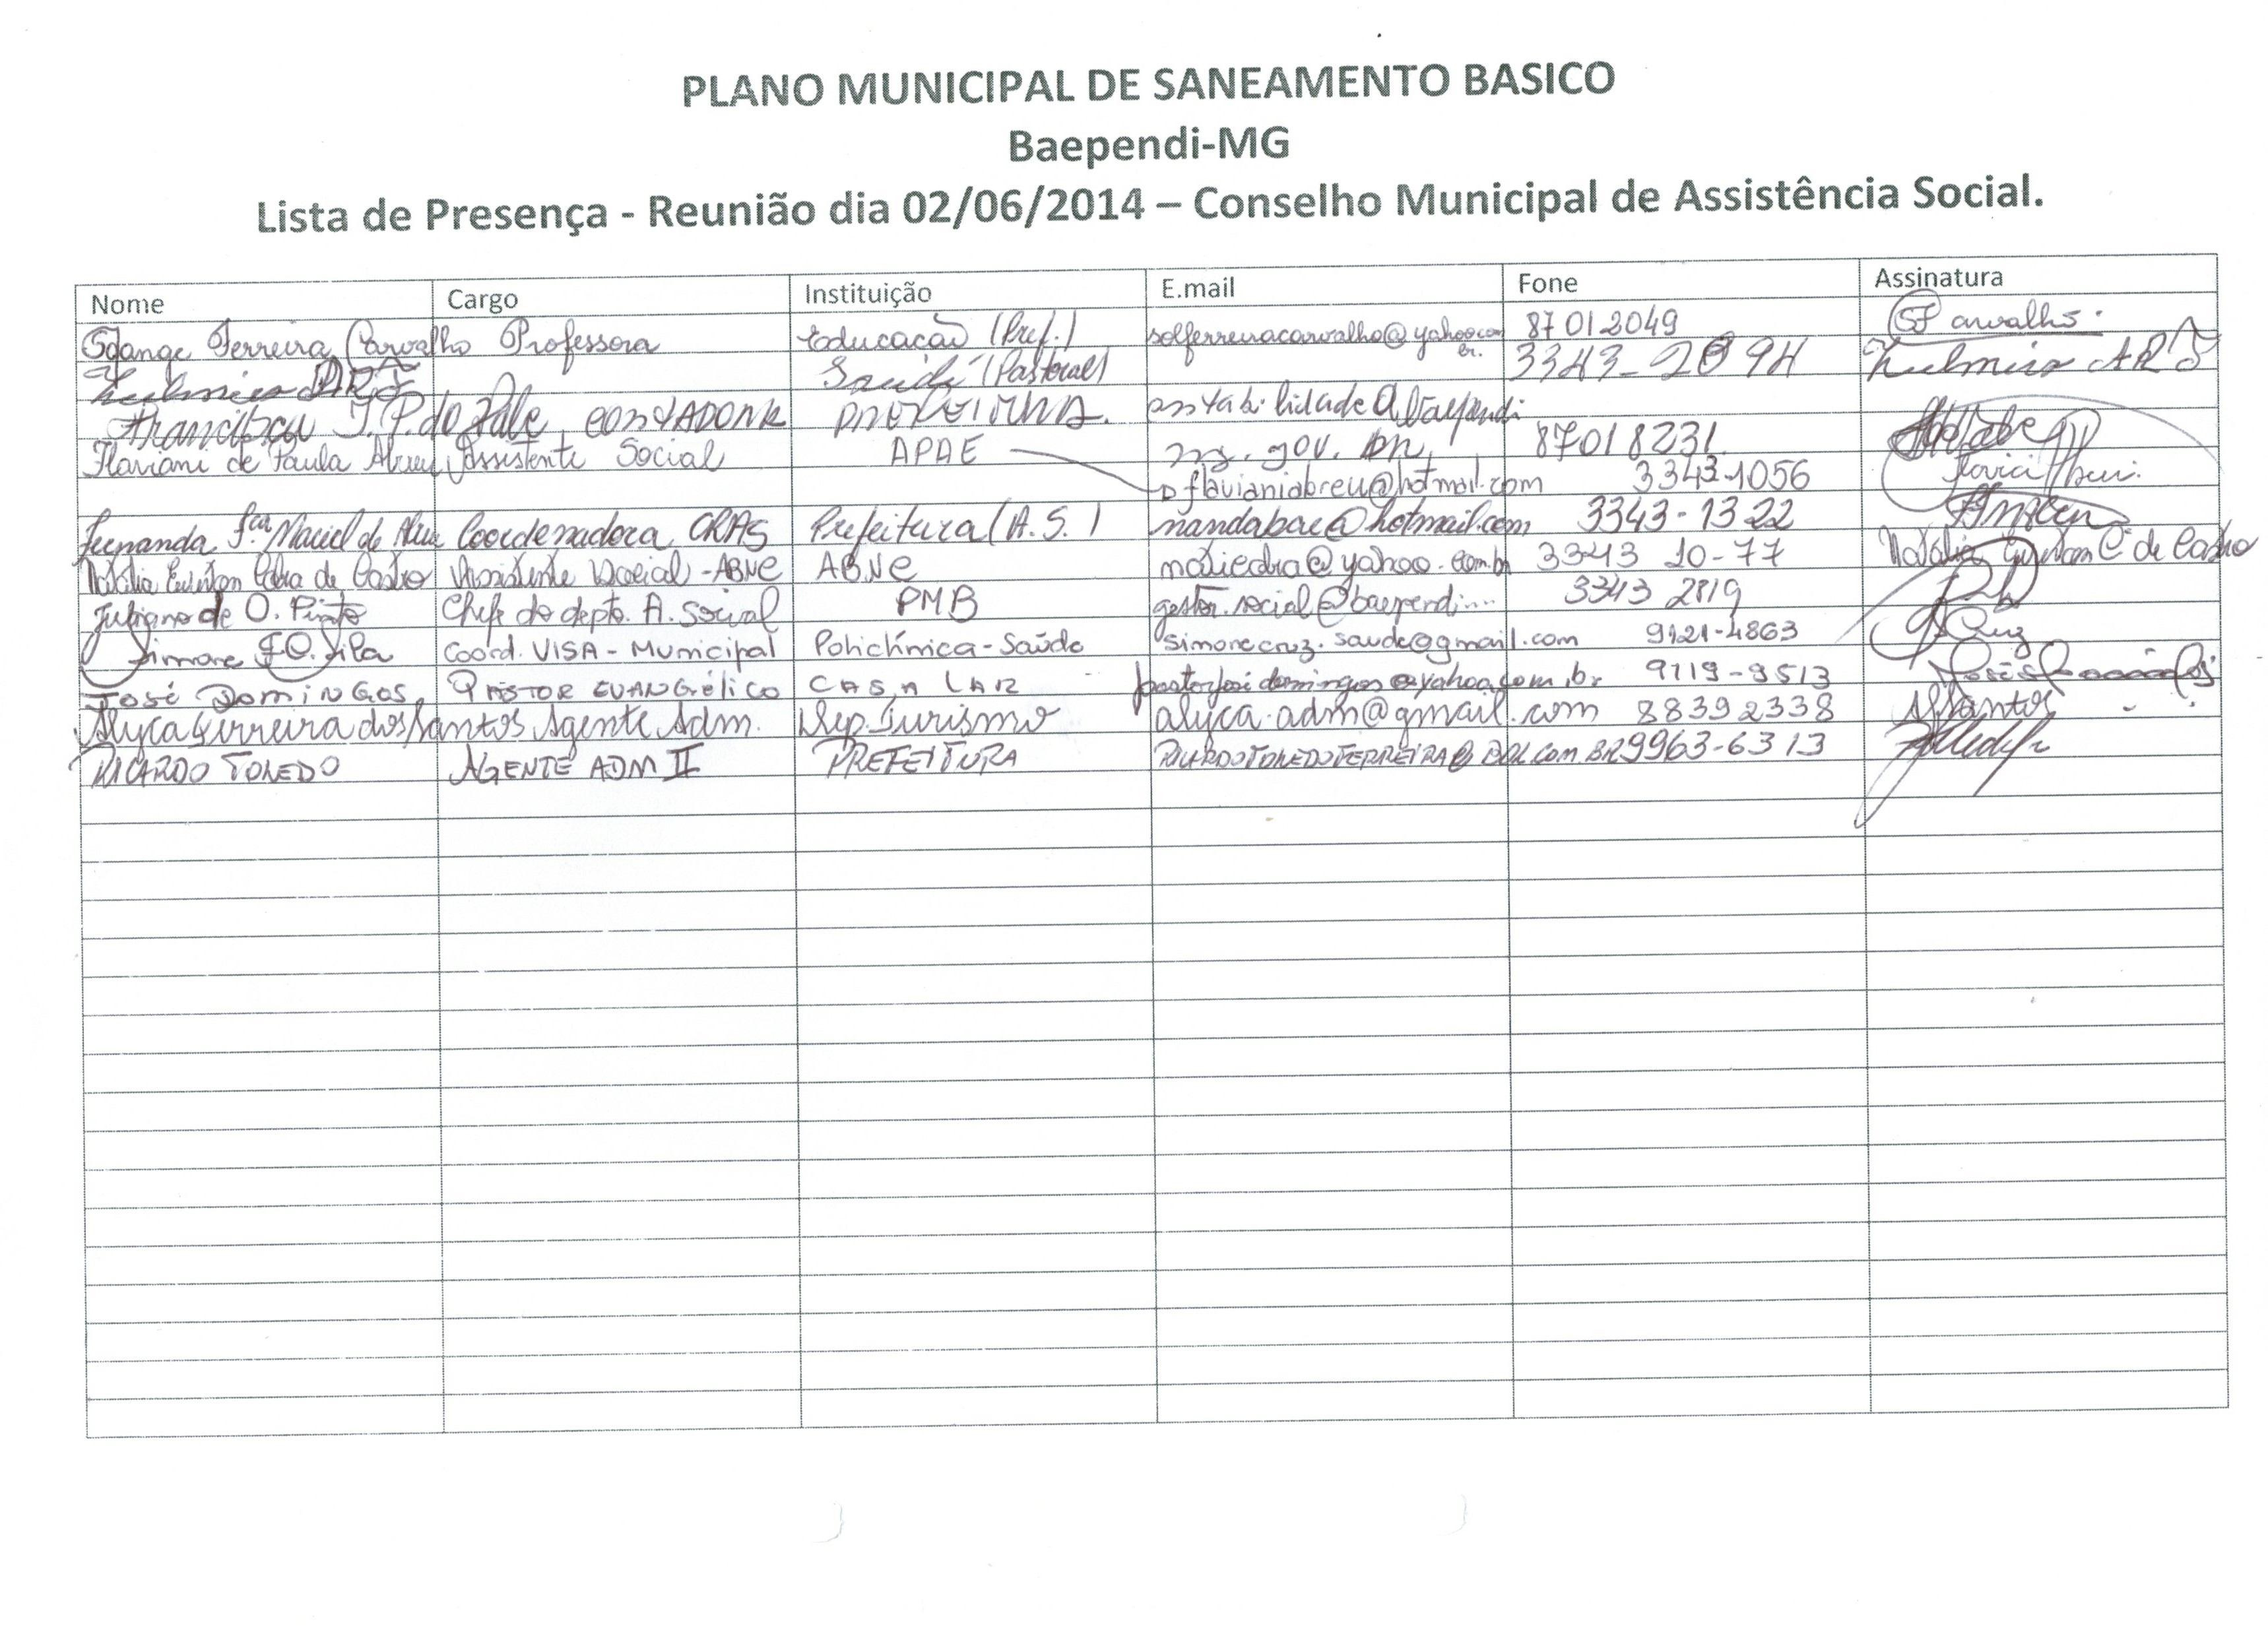 PLANO MUNICIPAL DE SANEAMENTO BASICO
Baependi-MG
Lista de Presença - Reunião dia 02/06/2014 – Conselho Municipal de Assistência Social.
Nome Cargo Instituição E.mail Fone Assinatura
Solange Ferreira Carvalho Professora Educação (Pref.) solferreiracarvalho@yahoo.com.br. 87012049 SF Carvalho.
Saúde (Pastoral) 3343-2094
J. P. do Vale CONTADOR PREFEITURA. contabilidade@baependi.mg.gov.br 87018231
Flaviani de Paula Abreu Assistente Social APAE flavianiabreu@hotmail.com 3343-1056
Fernanda Fca Maciel de Coordenadora CRAS Prefeitura (A.S.) nandabae@hotmail.com 3343-1322
Natália de Castro Assistente Social - ABNE ABNE natiedra@yahoo.com.br 3343 10-77 Natália C. de Castro
Juliano de O. Pinto Chefe do depto. A. Social PMB gestor.social@baependi... 3343 2819
Simone Coord. VISA - Municipal Policlínica - Saúde simonecruz.saude@gmail.com 9121-4863
José Domingos PASTOR EVANGÉLICO CASA LAR pastorjosedomingos@yahoo.com.br 9119-9513
Alyca Ferreira dos Santos Agente Adm. Dep. Turismo alyca.adm@gmail.com 88392338 ASantos
RICARDO TOLEDO AGENTE ADM II PREFEITURA RICARDOTOLEDOFERREIRA@BOL.COM.BR 9963-6313